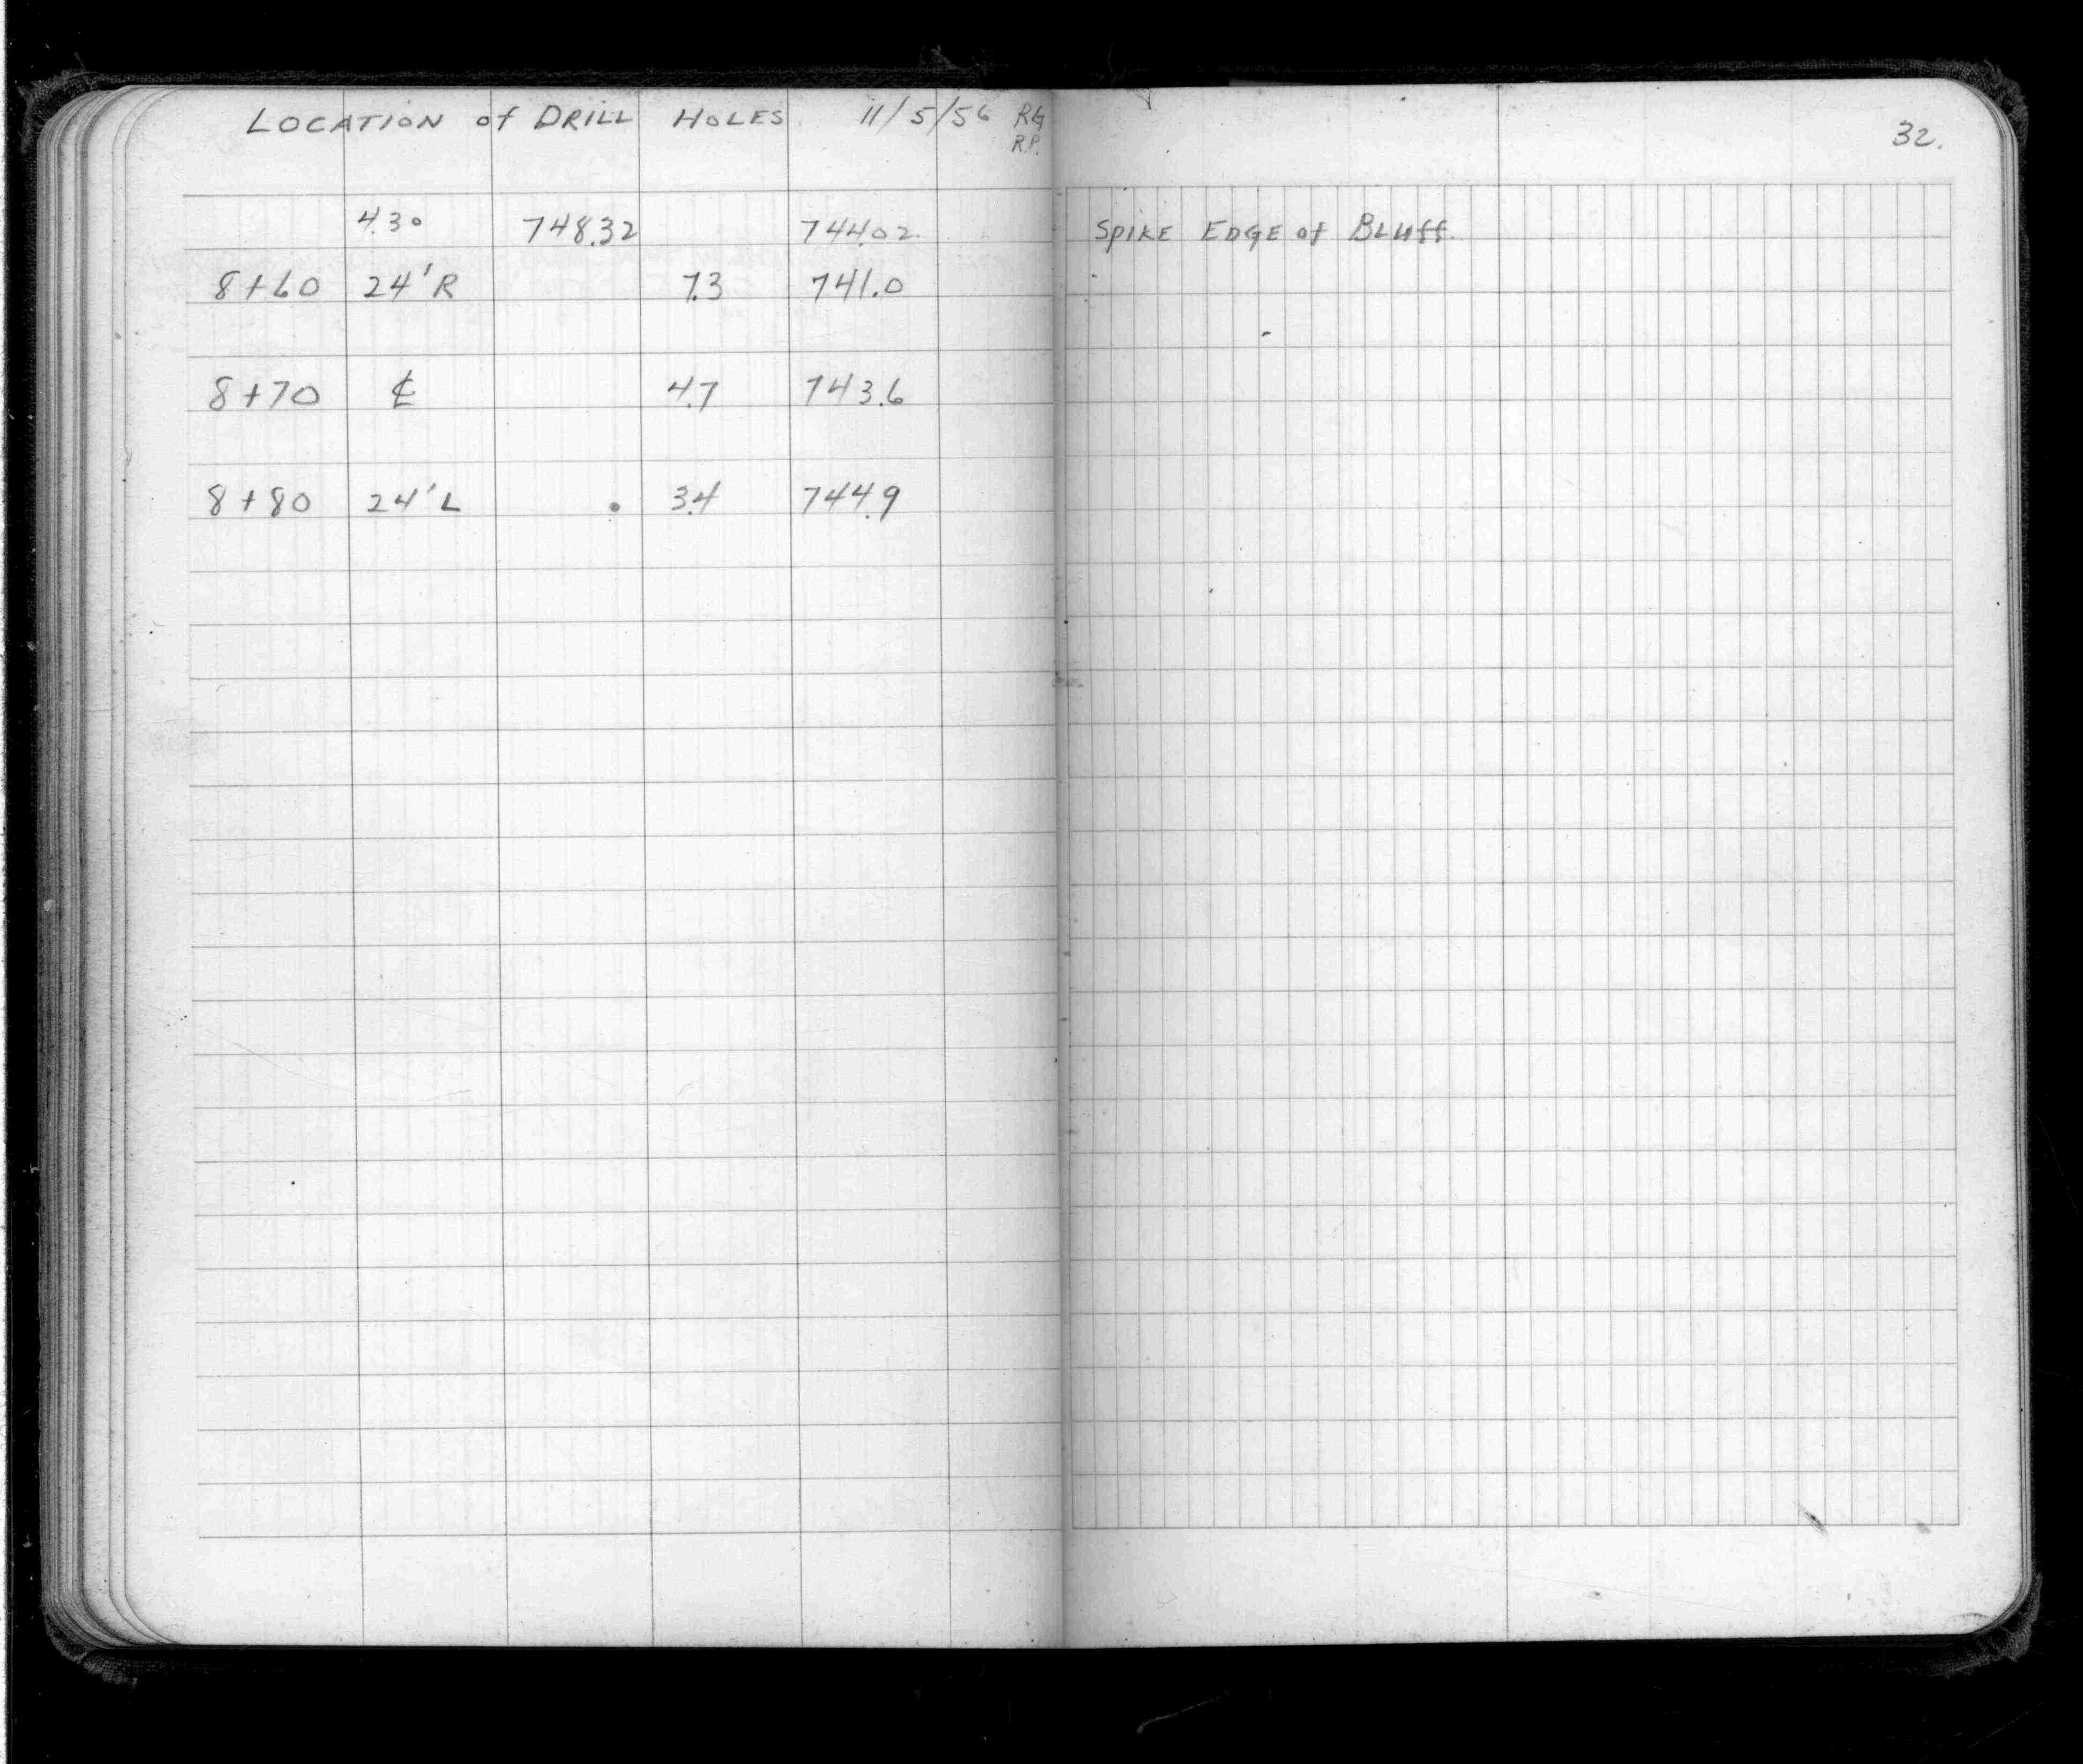 LOCATION of DRILL HOLES 11/5/56 RG
R.P.
32.
4.30 748.32 744.02 SPIKE EDGE of BLUff.
8+60 24'R 7.3 741.0
8+70 ℄ 4.7 743.6
8+80 24'L 3.4 744.9